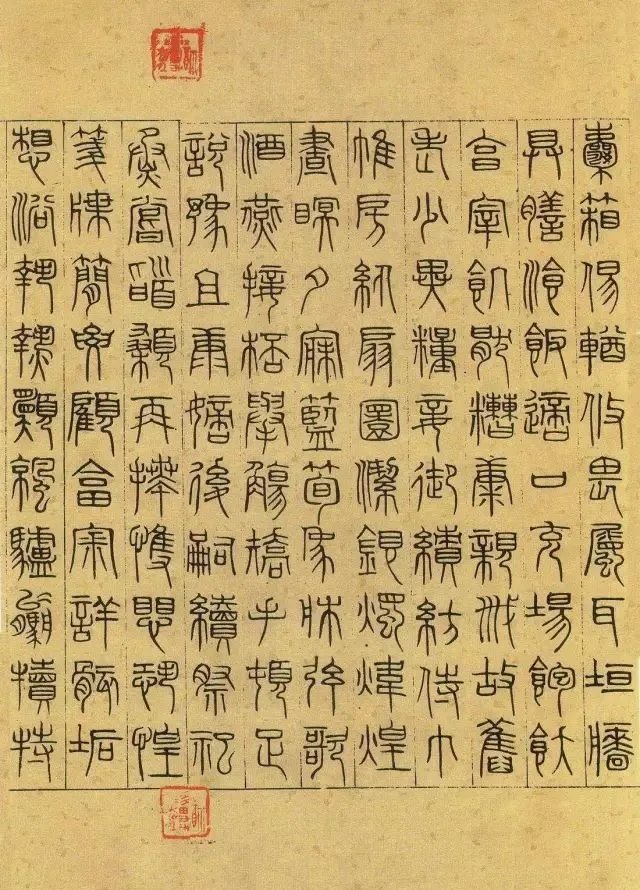 囊箱易輶攸畏屬耳垣牆
具膳飡飯適口充腸飽飫
亯宰飢厭糟糠親戚故舊
老少異糧妾御績紡侍巾
帷房紈扇圓潔銀燭煒煌
晝瞑夕寐籃筍象牀弦歌
酒燕接杯舉觴矯手頓足
說豫且康嫡後嗣續祭祀
烝嘗稽顙再拜悚懼恐惶
箋牒簡要顧答審詳骸垢
想浴執熱願涼驢騾犢特